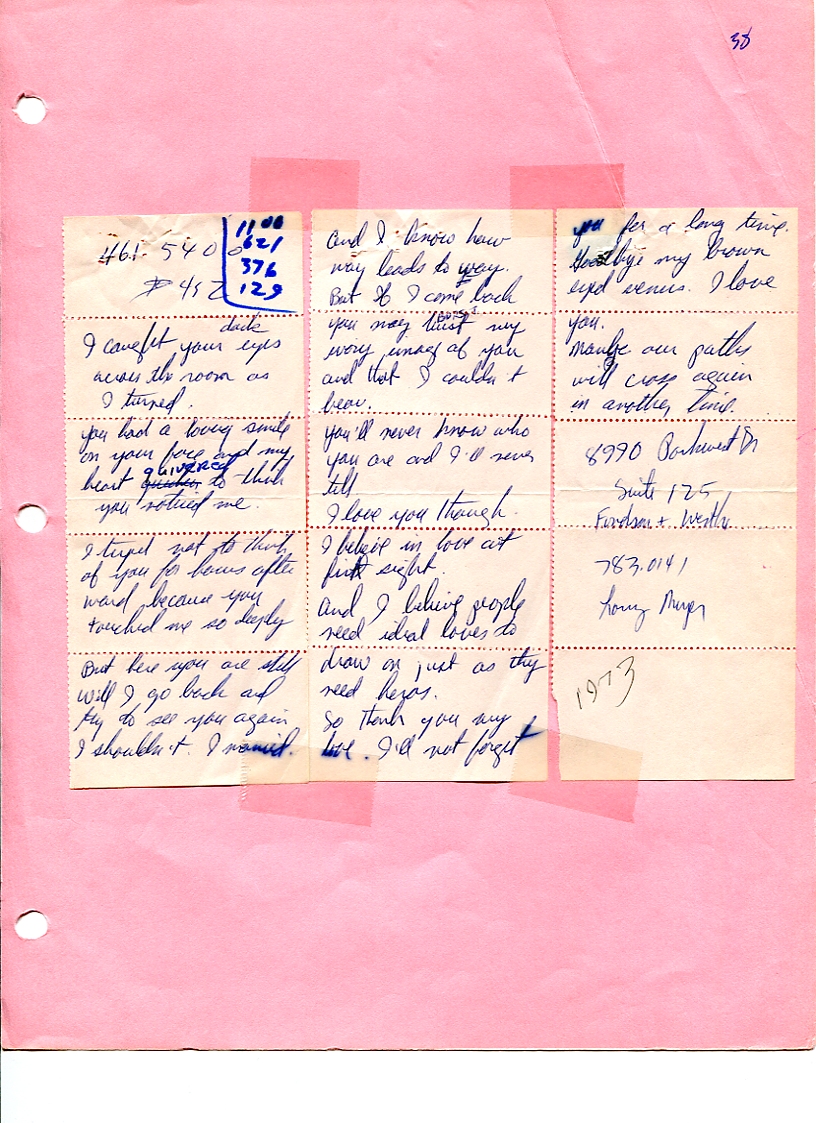 38
461-5400
1100
621
376
129
I caught your dark eyes
across the room as
I turned.
you had a loving smile
on your face and my
heart quivered to think
you noticed me.
I tryed not to think
of you for hours after
ward because you
touched me so deeply
But here you are still
will I go back and
try to see you again
I shouldn't. I married.
and I know how
way leads to way.
But if I come back
you may my
ivory image of you
and that I couldn't
bear.
you'll never know who
you are and I'll never
tell
I love you though.
I believe in love at
first sight.
And I believe people
need ideal loves to
draw on just as they
need heros.
So thank you my
love. I'll not forget
you for a long time.
Goodbye my brown
eyed venus. I love
you.
Maybe our paths
will cross again
in another time.
8990 Parkwest Dr
Suite 125
783.0141
1973